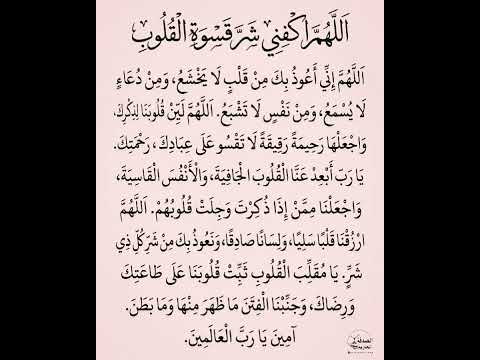 اَللَّهُمَّ اكْفِنِي شَرَّ قَسْوَةِ الْقُلُوبِ
اَللَّهُمَّ إِنِّي أَعُوذُ بِكَ مِنْ قَلْبٍ لَا يَخْشَعُ، وَمِنْ دُعَاءٍ
لَا يُسْمَعُ، وَمِنْ نَفْسٍ لَا تَشْبَعُ. اَللَّهُمَّ لَيِّنْ قُلُوبَنَا لِذِكْرِكَ،
وَاجْعَلْهَا رَحِيمَةً رَقِيقَةً لَا تَقْسُو عَلَى عِبَادِكَ، رَحْمَتِكَ.
يَا رَبِّ أَبْعِدْ عَنَّا الْقُلُوبَ الْجَافِيَةَ، وَالْأَنْفُسَ الْقَاسِيَةَ،
وَاجْعَلْنَا مِمَّنْ إِذَا ذُكِرْتَ وَجِلَتْ قُلُوبُهُمْ. اَللَّهُمَّ
ارْزُقْنَا قَلْبًا سَلِيمًا، وَلِسَانًا صَادِقًا، وَنَعُوذُ بِكَ مِنْ شَرِّ كُلِّ ذِي
شَرٍّ. يَا مُقَلِّبَ الْقُلُوبِ ثَبِّتْ قُلُوبَنَا عَلَى طَاعَتِكَ
وَرِضَاكَ، وَجَنِّبْنَا الْفِتَنَ مَا ظَهَرَ مِنْهَا وَمَا بَطَنَ.
آمِينَ يَا رَبَّ الْعَالَمِينَ.